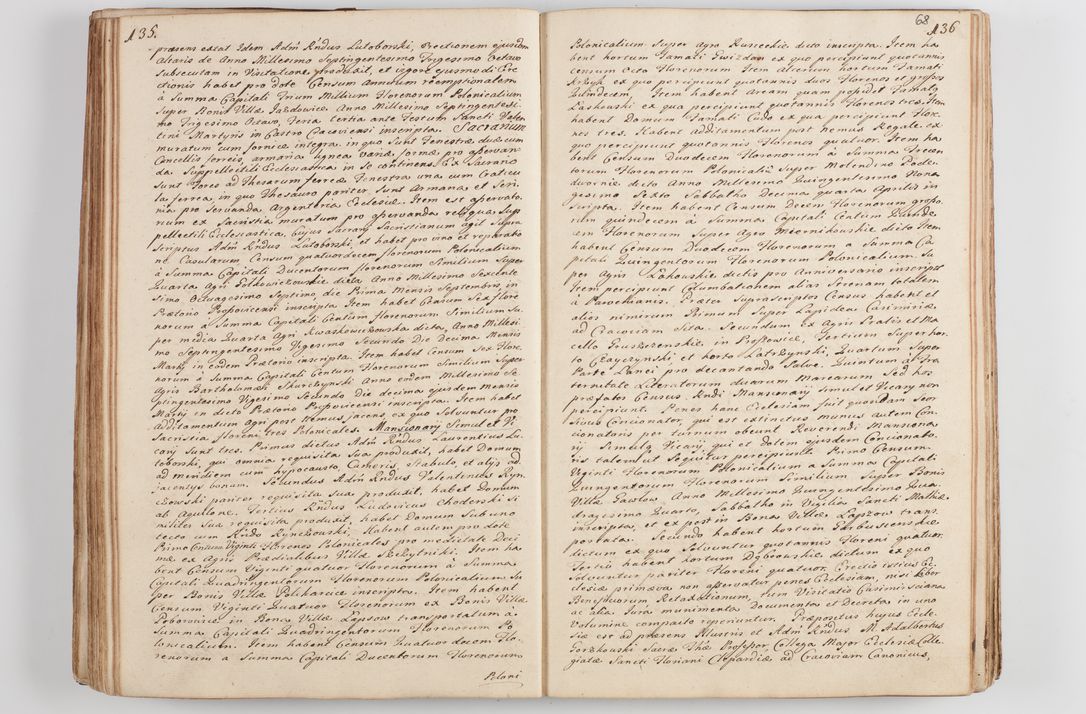 135.
præsens extat Idem Adm Rndus Lutoborski, Erectionem ejusdem
Altaris de Anno Millesimo Septingentesimo Trigesimo Octavo
Subsecutam in Visitatione produxit, et vigore ejusmodi Ere
ctionis habet pro dote Censum Annuum reemptionalem
à Summa Capitali Trium Millium Florenorum Polonicalium
Super Bonis Villæ Jazdowice Anno Millesimo Septingentesi
mo Trigesimo Octavo, Feria tertia ante Festum Sancti Valen
tini Martyris in Castro Cracoviensi inscripta. Sacrarium
muratum cum fornice integra, in quo Sunt Fenestræ duæ cum
Cancellis ferreis, armaria lignea variæ formæ, pro asservan
da Suppellectili Ecclesiastica in se continens. Ex Sacrario
Sunt fores ad Thesaurum ferreæ Fenestra una cum Craticu
la ferrea, in quo Thesauro pariter Sunt Armaria et Scri
nia pro Servanda Argenteria Ecclesiæ. Item est asservato
rium ex Sacristia muratum pro asservanda reliqua Sup
pellectili Ecclesiastica, cujus Sacrarij Sacristianum agit Supra
Scriptus Adm Rndus Lutoborski, et habet pro vino et reparatio
ne Casularum Censum quatuordecem florenorum Polonicalium
à Summa Capitali Ducentorum florenorum Similium Super
Quarta Agri Fołkowiczowskie dicta Anno Millesimo Sexcente
simo Octuagesimo Septimo, die Prima Mensis Septembris in
Prætorio Prossovicensi inscripta Item habet Censum Sex flore
norum à Summa Capitali Centum florenorum Similium Su
per media Quarta Agri Kwaskowicowska dicta, Anno Millesi
mo Septingentesimo Vigesimo Secundo Die decima Mensis
Martij in eodem Prætorio inscripta. Item habet Censum Sex Flore
norum à Summa Capitali Centum Florenorum Similium Super
Agris Bartholomæi Skurczynski Anno eodem Millesimo Se
ptingentesimo Vigesimo Secundo Die decima ejusdem mensis
Martij in dicto Prætorio Prossovicensi inscripta. Item habet
additamentum agri post Nemus jacens, ex quo Solvuntur pro
Sacristia floreni tres Polonicales. Mansionarij Simul et Vi
carij Sunt tres. Primus dictus Adm Rndus Laurentius Lu
toborski, qui omnia requisita Sua produxit, habet Domum
ad meridiem cum hypocausto, Cameris, Stabulo, et alijs ad
jacentijs bonam. Secundus Adm Rndus Valentinus Ryn
czowski pariter requisita Sua produxit, habet Domum
ab Aquilone. Tertius Rndus Ludovicus Choderski Si
militer Sua requisita produxit, habet Domum Sub uno
tecto cum Rndo Rynczowski. Habent autem pro dote
Primo Censum Viginti Florenos Polonicales pro medietate Deci
mæ ex Agris Prædialibus Villæ Skrzytniki. Item ha
bent Censum Viginti quatuor Florenorum à Summa
Capitali Quadringentorum Florenorum Polonicalium Su
per Bonis Villæ Pałkarcice inscripta. Item habent
Censum Viginti Quatuor Florenorum ex Bonis Villæ
Poborowice in Bona Villæ Łapszow transportatum à
Summa Capitali Quadringentorum Florenorum Po
lonicalium. Item habent Censum Quatuordecem Flo
renorum a Summa Capitali Ducentorum Florenorum
Poloni
68
136
Polonicalium Super Agro Rusieckie dicto inscripta. Item ha
bent hortum Famati Gwizdan ex quo percipiunt quotannis
censum Octo Florenorum Item Alterum hortum Famati
Krkyk ex quo percipiunt quotannis duos Florenos et grossos
Quindecem. Item habent Aream quam possidet Famatus
Laskowski ex qua percipiunt quotannis Florenos tres. Item
habent Domum Famati Cudo ex qua percipiunt Flore
nos tres. Habent additamentum post Nemus Regale ex
quo percipiunt quotannis Florenos quatuor. Item ha
bent Censum Duodecem Florenorum à Summa Trecen
torum Florenorum Polonicaliu Super Molendino Pode
dwornie dicto Anno Millesimo Quingentesimo Nona
gesimo Sexto Sabbatho Decima quarta Aprilis in
scripta. Item habent Censum Decem Florenorum grosso
rum quindecem à Summa Capitali Centum Quinde
cem Florenorum Super Agro Miernikowskie dicto Item
habent Censum Duodecem Florenorum a Summa Ca
pitali Quingentorum Florenorum Polonicalium. Su
per Agris Łokowskie dictis pro Anniversario inscript
Item percipiunt Columbationem alias Serenam totalem
à Parochianis. Præter Suprascriptos Census habent et
alios nimirum Primum Super Lapidea Casimiria,
ad Cracoviam Sita. Secundum ex Agris Pratis et Ma
cello Gruszzenskie in Prossowice, Tertium Super hor
to Czayczynski et horto Latkzynski, Quartum Super
Parte Lanei pro decantando Salve. Quintum à Fra
ternitate Literatorum duarum Marcarum Sed hos
præfatos Census Rndi Mansionarij Simul et Vicarij non
percipiunt. Penes hanc Ecclesiam fuit quondam Seor
Sivus Concionator, qui est extinctus munus autem Con
cionatoris per turnum obeunt Reverendi Mansiona
rij Simulq Vicarij qui et Dotem ejusdem Concionato
ris talem ut Sequitur percipiunt. Primo Censum
Viginti Florenorum Polonicalium a Summa Capitali
Quingentorum Florenorum Similium Super Bonis
Villæ Pawłow Anno Millesimo Quingentesimo Qua
dragesimo Quarto, Sabbatho in Vigilia Sancti Mathiæ
inscriptos, et ex post in Bona Villæ Łapszow trans
portata. Secundo habent hortum Garbusienskie
dictum ex quo Solvuntur quotannis Floreni quatuor.
Tertio habent hortum Dębrowskie dictum ex quo
Solvuntur pariter Floreni quatuor. Erectio istius Ec
clesiæ primæva non asservatur penes Ecclesiam, nisi Liber
Beneficiorum Retaxationum, tum Visitatio Casimirsciana
ac alia Jura munimenta Documenta et Decreta in uno
Volumine compacto reperiuntur. Præpositus hujus Eccle
siæ est ad præsens Illustris et Adm Rndus M. Adalbertus
Gorzkowski Sacræ Thæ Professor Collega Major Ecclesiæ Colle
giatæ Sancti Floriani Clepardiæ ad Cracoviam Canonicus,